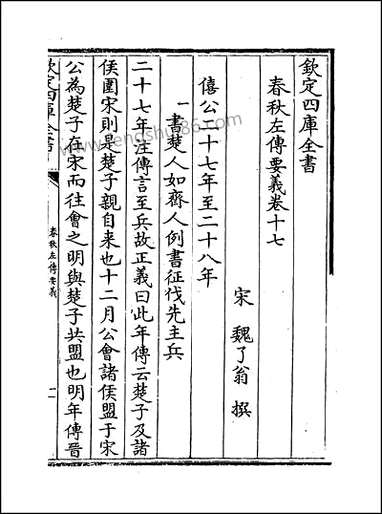 欽定四庫全書
春秋左傳要義卷十七
宋 魏了翁 撰
僖公二十七年至二十八年
一書楚人如齊人例書征伐先主兵
二十七年注傳言至兵故正義曰此年傳云楚子及諸
侯圍宋則是楚子親自来也十二月公會諸侯盟于宋
公為楚子在宋而往會之明與楚子共盟也明年傳晉
欽定四庫全書
春秋左傳要義
一